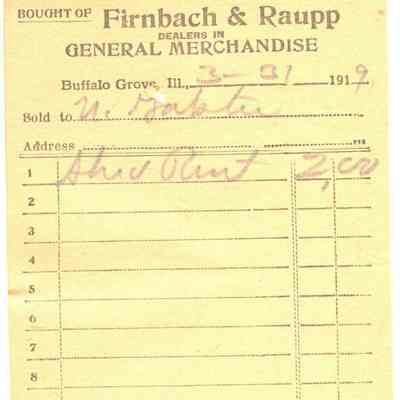 BOUGHT OF Firnbach & Raupp
DEALERS IN
GENERAL MERCHANDISE
Buffalo Grove, Ill., 3-31 1919
Sold to N.
Address
1 Shed Rent 2,00
2
3
4
5
6
7
8